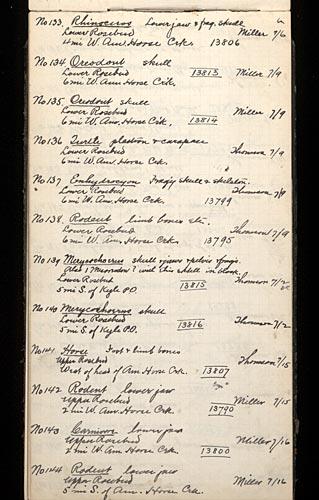 No 133. Rhinoceros Lower jaw & frag. skull
Lower Rosebud Miller 7/6
4 mi W. Am. Horse Crk. 13806
No 134. Oreodont skull
Lower Rosebud 13813 Miller 7/9
6 mi W. Am. Horse Crk.
No 135 Oreodont skull
Lower Rosebud Miller 7/9
6 mi W. Am. Horse Crk. 13814
No 136 Turtle plastron & carapace
Lower Rosebud Thomson 7/9
6 mi W. Am. Horse Crk.
No 137 Enhydrocyon Frag'y skull & skeleton.
Lower Rosebud Thomson 7/9
6 mi W. Am. Horse Crk. 13799
No 138. Rodent limb bones etc.
Lower Rosebud Thomson 7/9
6 mi W. Am. Horse Crk. 13795
No 139 Merycochoerus skull & pelvis frags.
Also 1 with this skull in block.
Lower Rosebud 13815 Thomson 7/12
5 mi S. of Kyle P.O.
No 140 Merycochoerus skull
Lower Rosebud 13816 Thomson 7/12
5 mi S. of Kyle P.O.
No 141 Horse Foot & limb bones
Upper Rosebud Thomson 7/15
West of head of Am. Horse Crk. 13807
No 142 Rodent lower jaw
Upper Rosebud Miller 7/15
2 mi W. Am. Horse Crk. 13790
No 143 Carnivore lower jaw
Upper Rosebud Miller 7/16
2 mi W. Am. Horse Crk. 13800
No 144 Rodent lower jaw
Upper Rosebud Miller 7/16
5 mi S. of Am. Horse Crk.